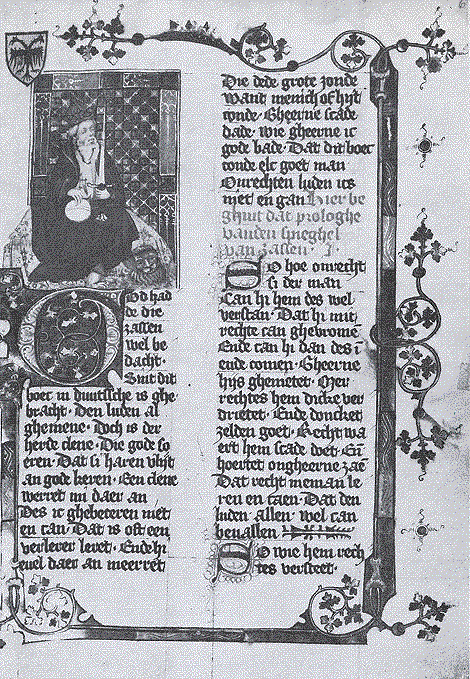 God had
de die
zassen
wel be
dacht·
Sint dit
boec in duutsche is ghe
bracht· Den luden al
ghemene· Doch is der
herde clene· Die gode so
eren· Dat si haren vlijt
an gode keren· Een clene
werret mi daer an
Des ic ghebeteren niet
en can· Dat is oft een
verkerer leret· Ende hi
euel daer an meerret
Die dede grote zonde
Want menich of hijt
conde· Gheerne scade
dade· Wie gheerne ic
gode bade· Dat dit boec
conde elc goet man
Onrechten luden ics
niet en gan Hier be
ghint dat prologhe
vanden spieghel
van zassen·
So hoe onrecht
si der man
Can hi hem des wel
verstan· Dat hi mit
rechte can ghevromen
Ende can hi dan des i
ende comen· Gheerne
hijs ghemetet· Mer
rechtes hem dicke ver
drietet· Ende doncket
zelden goet· Recht wa
ert hem scade doet· En
hoertet ongheerne zaen
Dat recht nieman le
ren en caen· Dat den
luden allen wel can
beuallen
So wie hem rech
tes versteet·